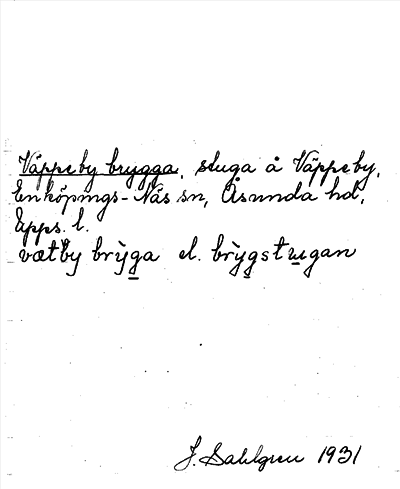 Väppeby brygga, stuga å Väppeby,
Enköpings-Näs sn, Åsunda hd,
Upps. l.
vætby brỳga el. brỳgstugan
J. Sahlgren 1931